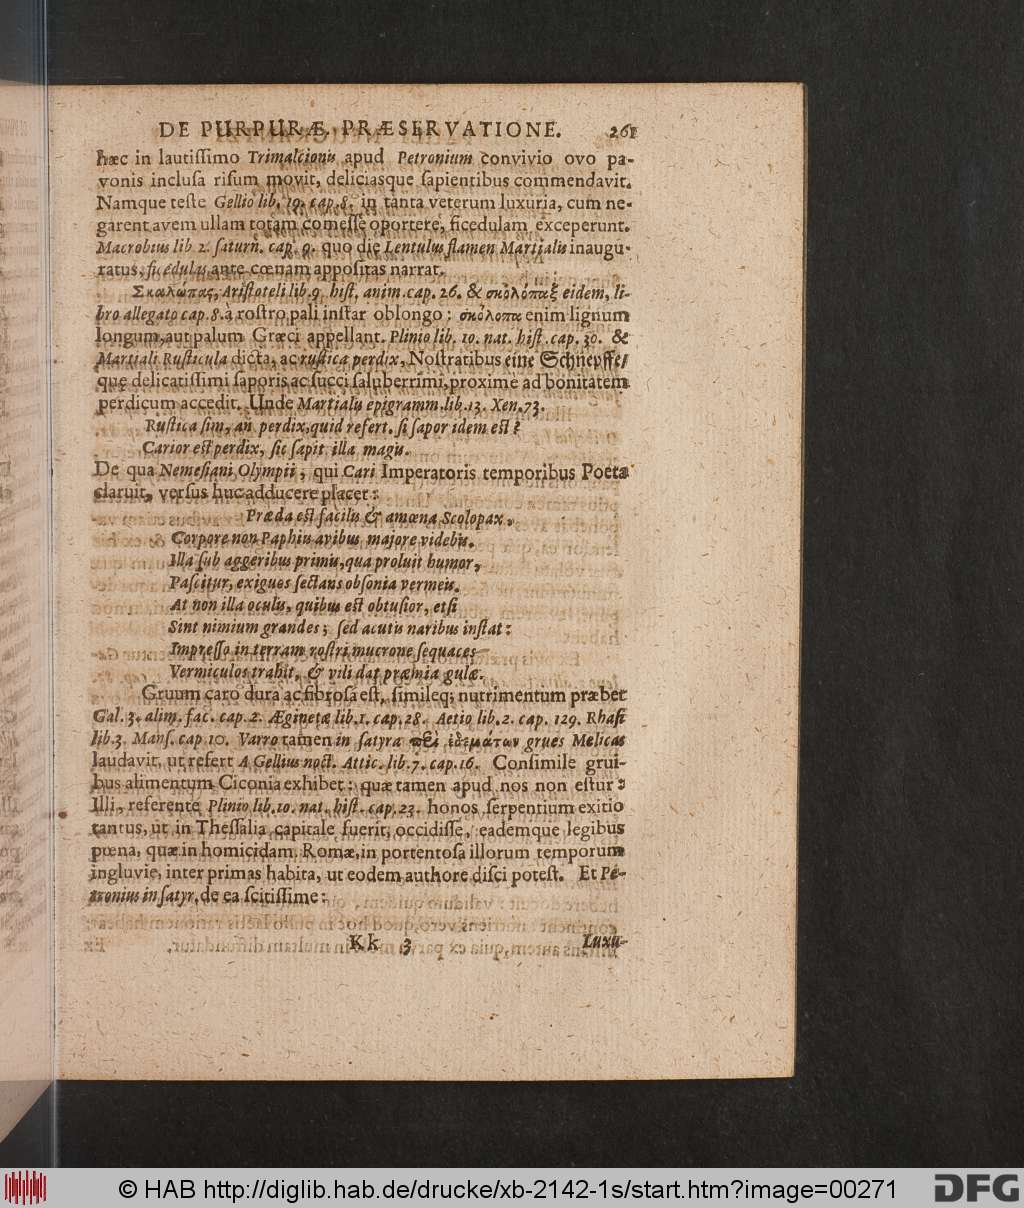 DE PURPURÆ. PRÆSERVATIONE. 261
hæc in lautissimo Trimalcionis apud Petronium convivio ovo pa-
vonis inclusa risum movit, deliciasque sapientibus commendavit.
Namque teste Gellio lib. 19. cap. 8. in tanta veterum luxuria, cum ne-
garent avem ullam totam comesse oportere, ficedulam exceperunt.
Macrobius lib. 2. saturn. cap. 9. quo die Lentulus flamen Martialis inaugu-
ratus, ficedulas ante cœnam appositas narrat.
Σκαλώπας, Aristoteli lib. 9. hist. anim. cap. 26. & σκολόπαξ eidem, li-
bro allegato cap. 8. à rostro pali instar oblongo: σκόλοπα enim lignum
longum, aut palum Græci appellant. Plinio lib. 10. nat. hist. cap. 30. &
Martiali Rusticula dicta, ac rustica perdix, Nostratibus eine Schnepffe/
quę delicatissimi saporis ac succi saluberrimi, proximè ad bonitatem
perdicum accedit. Unde Martialis epigramm. lib. 13. Xen. 73.
Rustica sim, an perdix, quid refert, si sapor idem est?
Carior est perdix, sic sapit illa magis.
De qua Nemesiani Olympii, qui Cari Imperatoris temporibus Poeta
claruit, versus huc adducere placet:
Præda est facilis & amœna Scolopax,
Corpore non Paphiis avibus majore videbis.
Illa sub aggeribus primis, qua proluit humor,
Pascitur, exiguos sectans obsonia vermeis.
At non illa oculis, quibus est obtusior, etsi
Sint nimium grandes; sed acutis naribus instat:
Impresso in terram rostri mucrone sequaces
Vermiculos trahit, & vili dat præmia gulæ.
Gruum caro dura ac fibrosa est, simileq; nutrimentum præbet
Gal. 3. alim. fac. cap. 2. Æginetæ lib. 1. cap. 28. Aetio lib. 2. cap. 129. Rhasi
lib. 3. Mans. cap 10. Varro tamen in satyra περὶ ἐδεσμάτων grues Melicas
laudavit, ut refert A Gellius noct. Attic. lib. 7. cap. 16. Consimile grui-
bus alimentum Ciconia exhibet: quæ tamen apud nos non estur:
Illi, referente Plinio lib. 10. nat. hist. cap. 23. honos serpentium exitio
tantus, ut in Thessalia capitale fuerit, occidisse, eademque legibus
pœna, quæ in homicidam. Romæ, in portentosa illorum temporum
ingluvie, inter primas habita, ut eodem authore disci potest. Et Pe-
tronius in satyr. de ea scitissime:
Kk 3 Luxu-
© HAB http://diglib.hab.de/drucke/xb-2142-1s/start.htm?image=00271 DFG